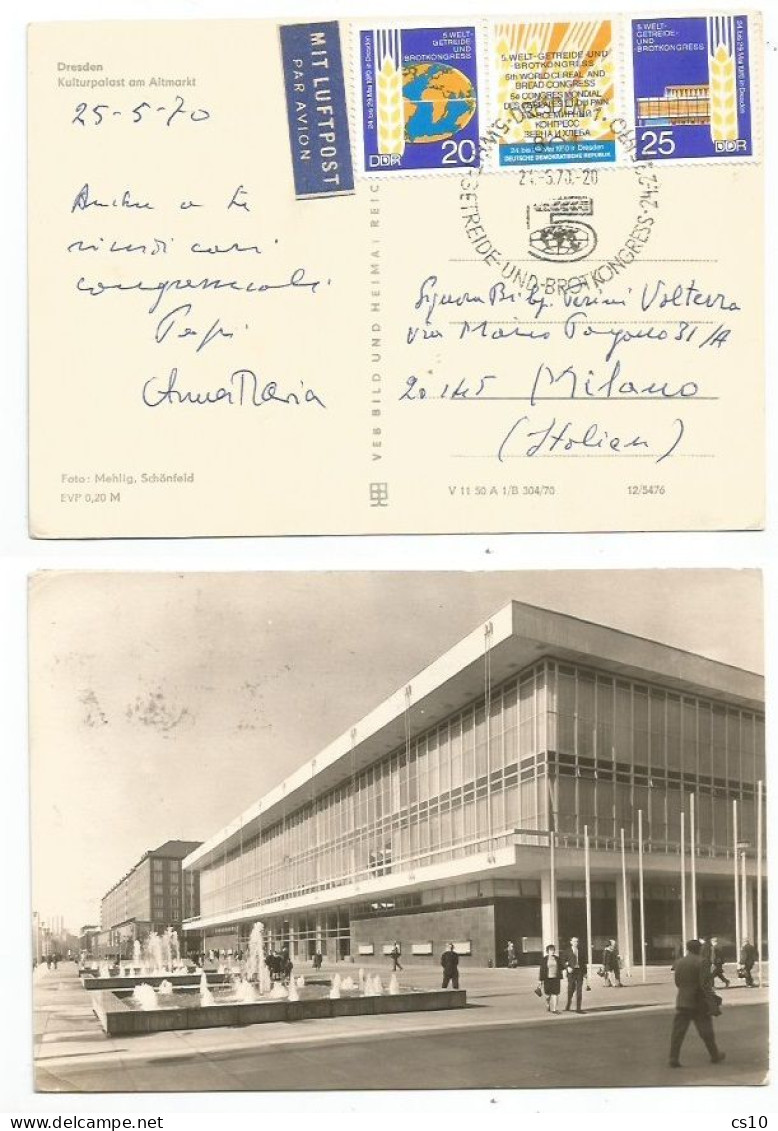 Dresden
Kulturpalast am Altmarkt
25-5-70
MIT LUFTPOST
PAR AVION
24. bis 29. Mai 1970 in Dresden
5. WELT-
GETREIDE-
UND
BROTKONGRESS
DDR 20
5. WELT-GETREIDE-UND
BROTKONGRESS
5th WORLD CEREAL AND
BREAD CONGRESS
5e CONGRES MONDIAL
DES CEREALES ET DU PAIN
5й ВСЕМИРНЫЙ
КОНГРЕСС
ЗЕРНА И ХЛЕБА
24. bis 29. Mai 1970 in Dresden
DEUTSCHE DEMOKRATISCHE REPUBLIK
5. WELT-
GETREIDE-
UND
BROTKONGRESS
24. bis 29. Mai 1970 in Dresden
DDR 25
5. WELT-GETREIDE-UND-BROTKONGRESS·24.-29.
5
Anche a te
ricordi cari
congressuali
Anna Maria
VEB BILD UND HEIMAT REIC
Signora
Volterra
via Marco 31/A
20145 Milano
(Italien)
Foto: Mehlig, Schönfeld
EVP 0,20 M
V 11 50 A 1/B 304/70
12/5476
cs10